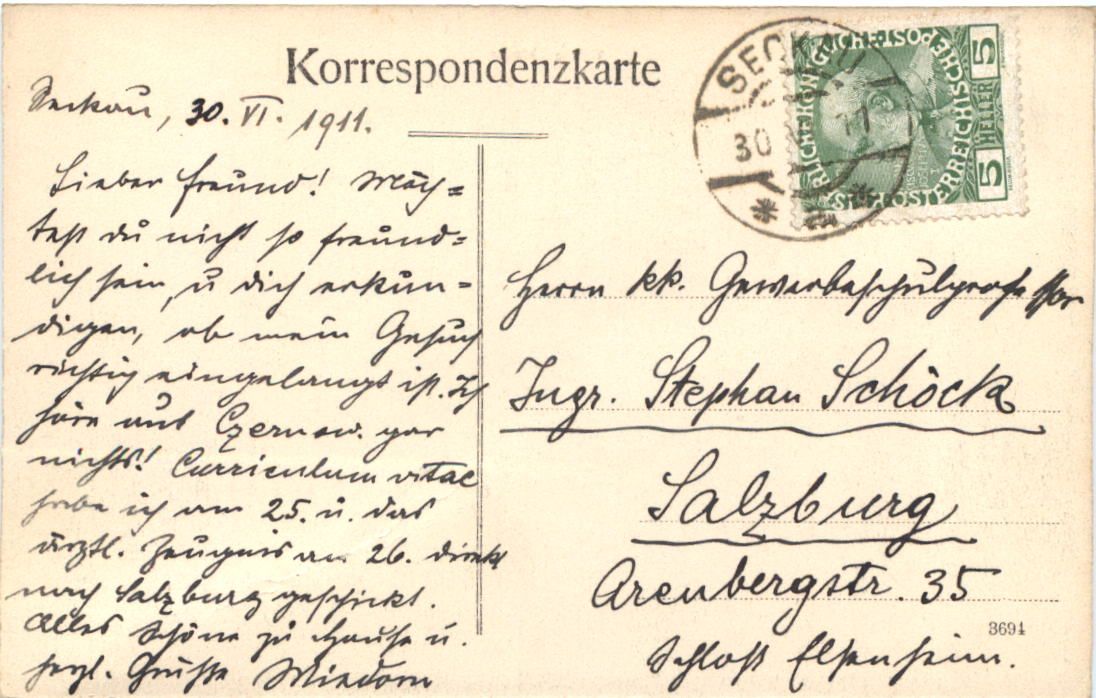 Korrespondenzkarte
SECKAU
30
11
5 HELLER 5
Seckau, 30. VI. 1911.
Lieber Freund! Möch=
test du nicht so freund=
lich sein, u dich erkun=
digen, ob mein Gesuch
richtig eingelangt ist. Ich
höre aus Czernow. gar
nichts! Curriculum vitae
habe ich am 25. u. das
ärztl. Zeugnis am 26. direkt
nach Salzburg geschickt.
Alles Schöne zu Hause u.
herzl. Grüße
Herrn kk. Gewerbeschulprofessor
Ingr. Stephan Schöck
Salzburg
Arenbergstr. 35
Schloß Elsenheim.
3694